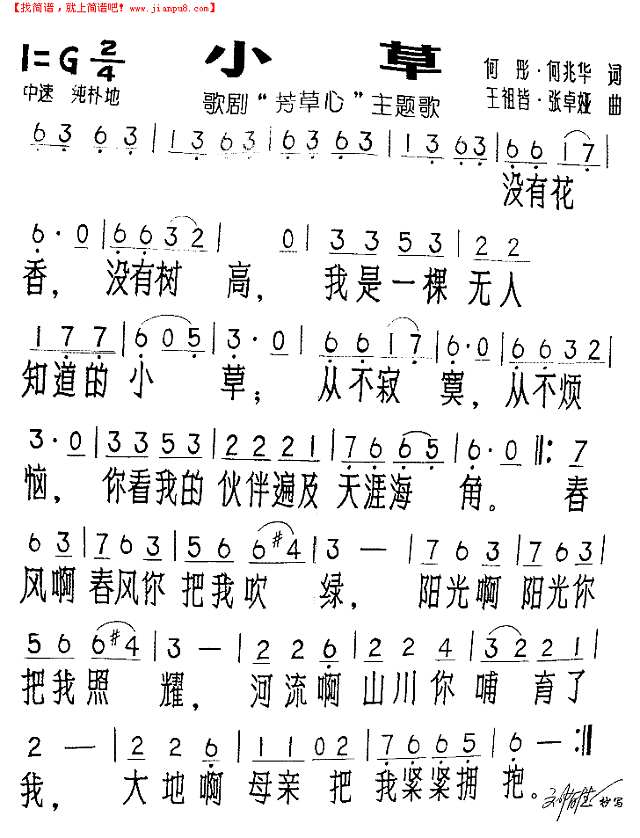 【找简谱，就上简谱吧！www.jianpu8.com】
1=G 2/4 小 草 何 彤·何兆华 词
中速 纯朴地 歌剧“芳草心”主题歌 王祖皆·张卓娅 曲
6 3 6 3 | 1 3 6 3 | 6 3 6 3 | 1 3 6 3 | 6 6 1 7 |
没有花
6· 0 | 6 6 3 2 | 0 | 3 3 5 3 | 2 2
香，没有树 高，我是一棵 无人
1 7 7 | 6 0 5 | 3· 0 | 6 6 1 7 | 6· 0 | 6 6 3 2 |
知道的 小 草；从不寂 寞，从不烦
3· 0 | 3 3 5 3 | 2 2 2 1 | 7 6 6 5 | 6· 0 :‖: 7
恼，你看我的 伙伴遍及 天涯海 角。春
6 3 | 7 6 3 | 5 6 6 #4 | 3 — | 7 6 3 | 7 6 3 |
风啊 春风你 把我吹 绿，阳光啊 阳光你
5 6 6 #4 | 3 — | 2 2 6 | 2 2 4 | 3 2 2 1 |
把我照 耀，河流啊 山川你 哺 育了
2 — | 2 2 6 | 1 1 0 2 | 7 6 6 5 | 6 — :‖
我，大地啊 母亲 把 我紧紧拥 抱。
抄写